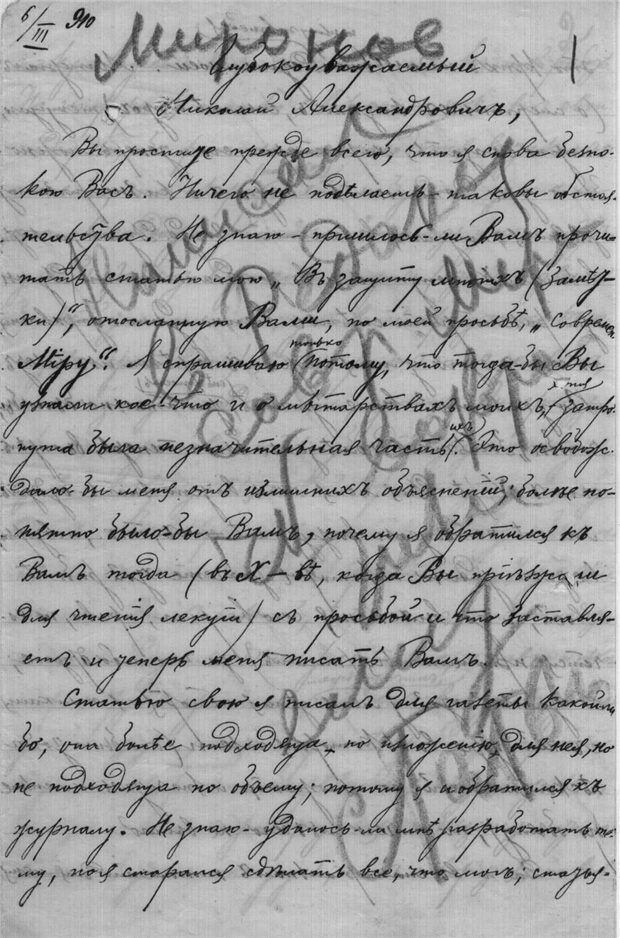 6/III 910
Миронов
Глубокоуважаемый
Николай Александровичъ,
Вы простите прежде всего, что я снова безпо-
кою Васъ. Ничего не подѣлаешь – таковы обстоя-
тельства. Не знаю – пришлось-ли Вамъ прочи-
тать статью мою „Въ защиту (замѣт-
ки)“, отосланную Вами, по моей просьбѣ, „Соврем.
Міру“. Я спрашиваю только потому, что тогда-бы Вы
узнали кое-что и о мытарствахъ моихъ, затро-
нута была незначительная часть ихъ. Это освобож-
дало бы меня отъ излишнихъ объясненій; болѣе по-
нятно было-бы Вамъ, почему я обратился къ
Вамъ тогда (въ X–бѣ, когда Вы пріѣзжали
для чтенія лекціи) съ просьбой и что заставля-
етъ и теперь меня писать Вамъ.
Статью свою я писалъ для газеты какой-ли
бо, она болѣе подходяща, по изложенію, для нея, но
не подходяща по объему; потому я и обратился къ
журналу. Не знаю – удалось-ли мнѣ разработать те-
му, но я старался сдѣлать все, что могъ; статья-